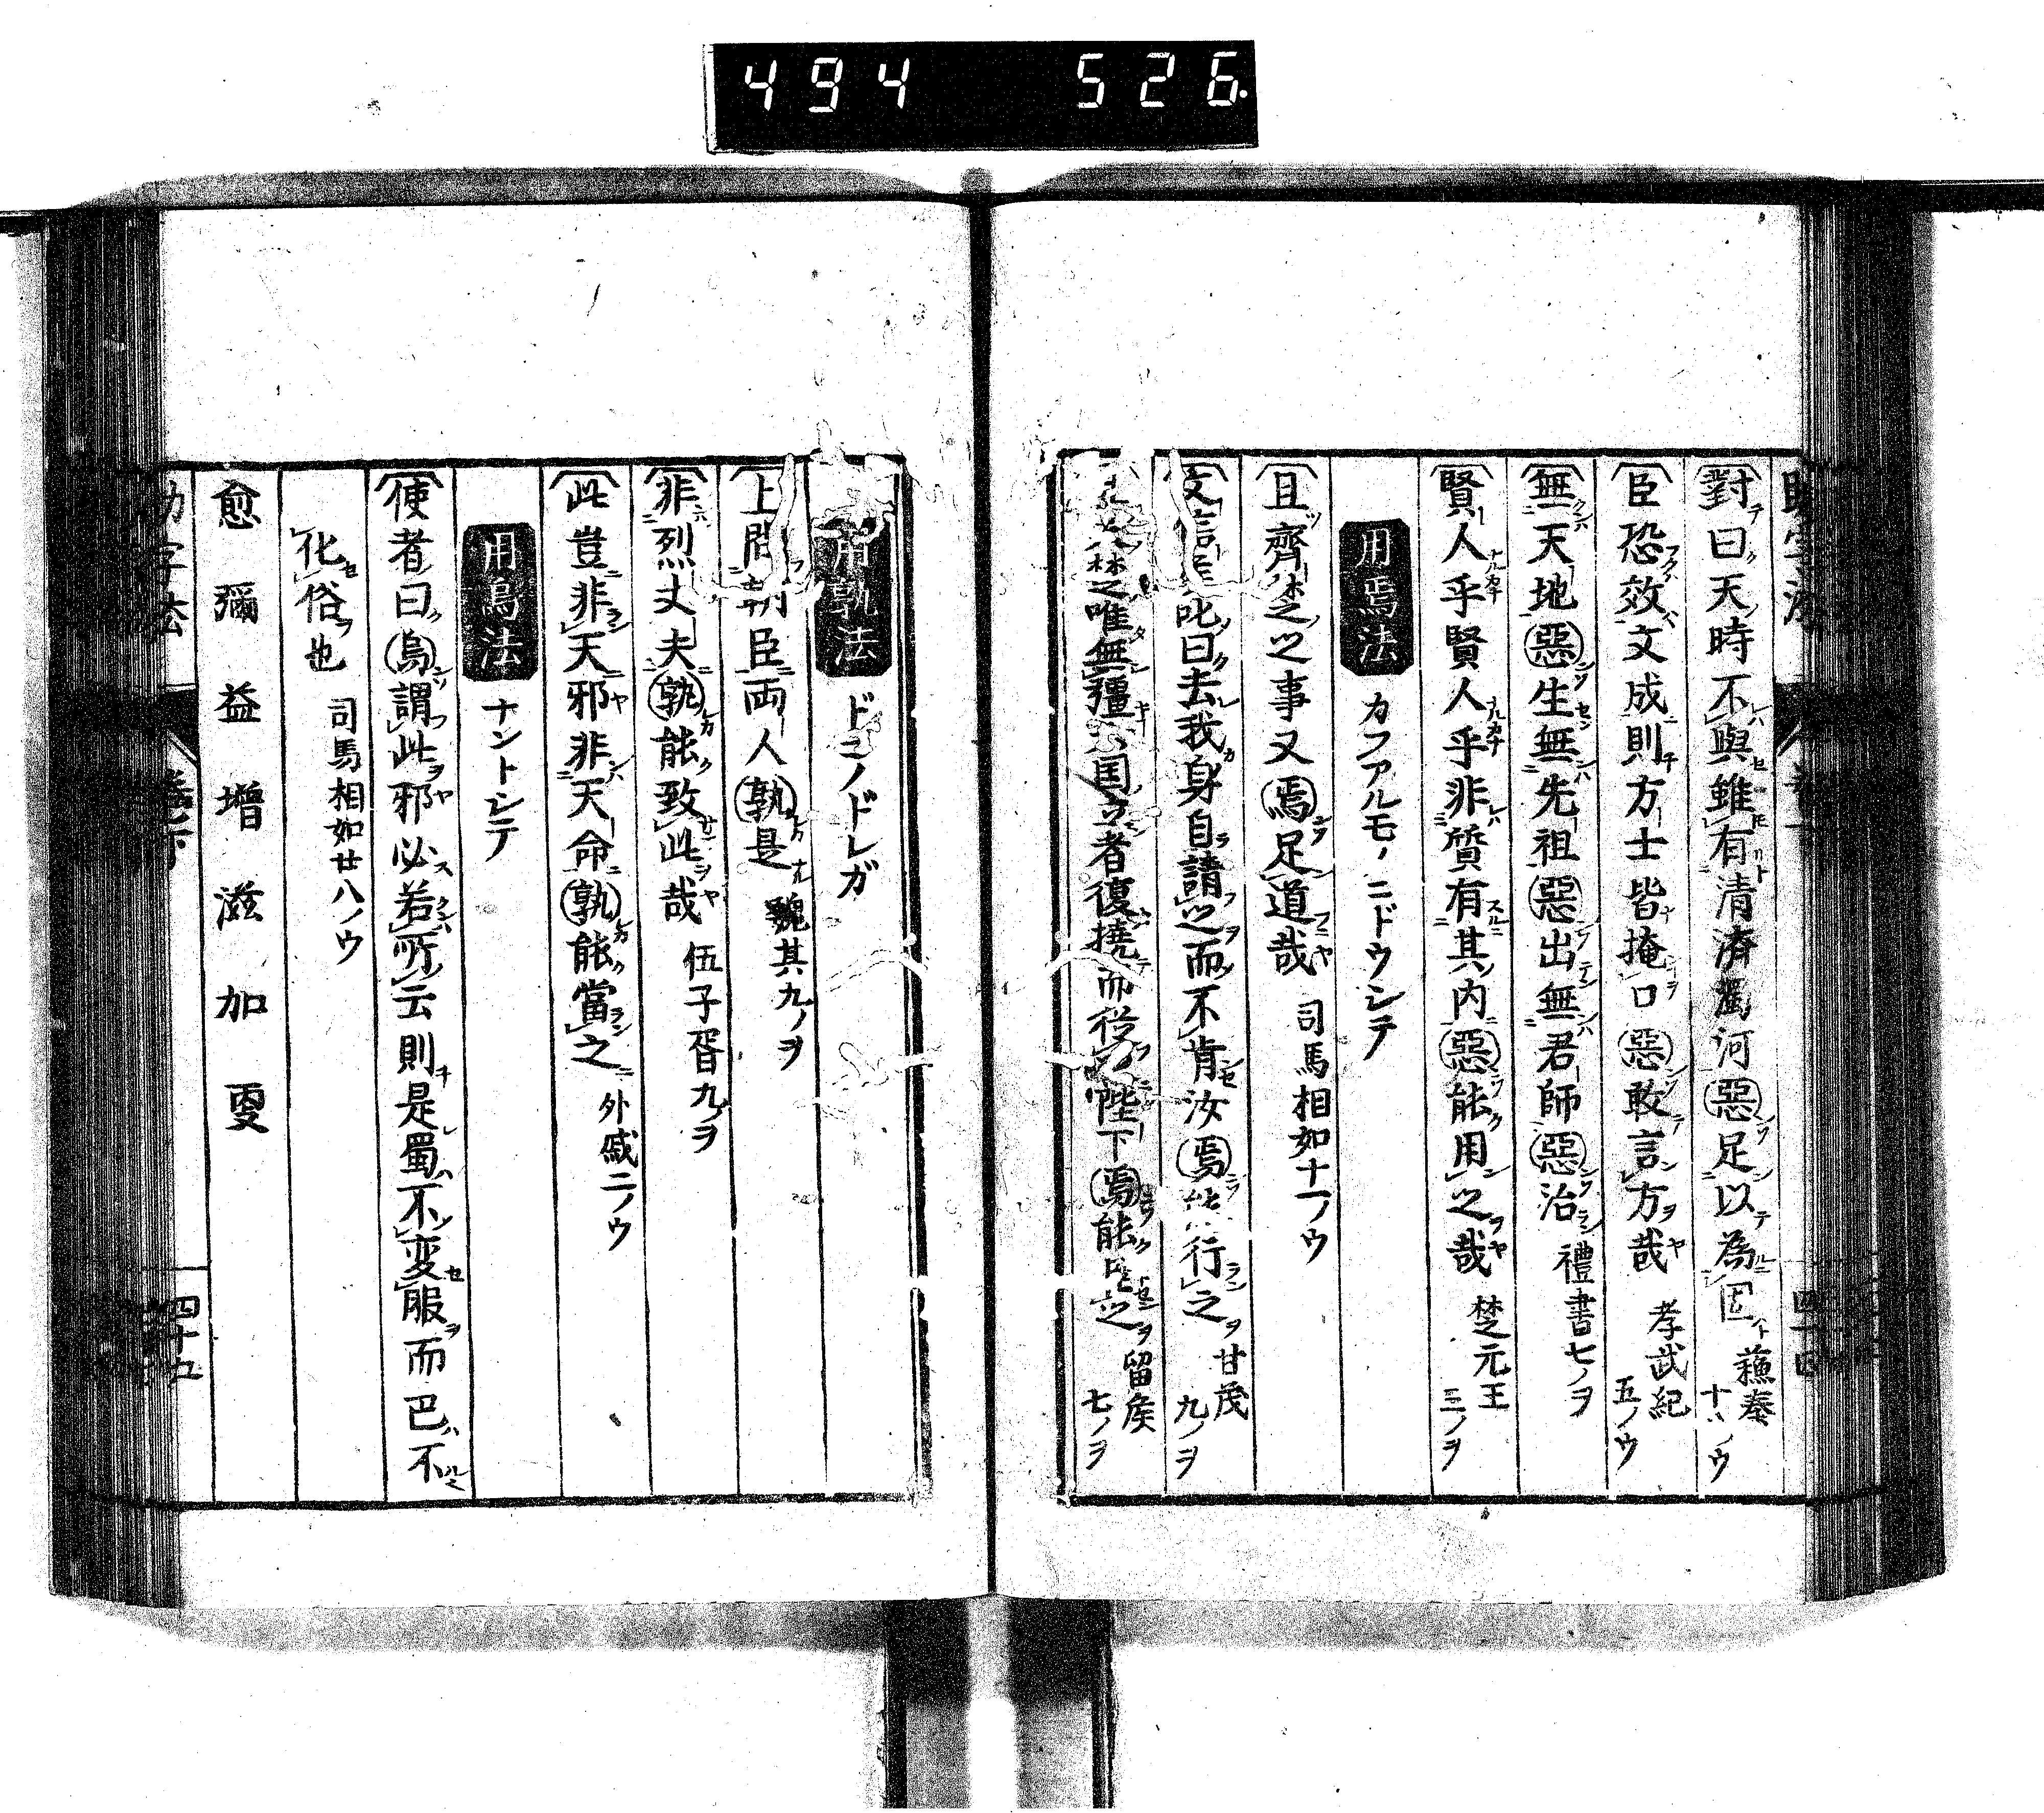 494 526
對曰天時不與雖有清濟濁河惡足以為固 蘓秦
臣恐效文成則方士皆掩口惡敢言方哉 孝武紀 五ノウ
無天地惡生無先祖惡出無君師惡治 禮書七ノヲ
賢人乎賢人乎非質有其内惡能用之哉 楚元王 三ノヲ
用焉法 カフアルモノニドウシテ
且齊楚之事又焉足道哉 司馬相如十一ノウ
叱曰去我身自請之而不肯汝焉能行之 甘茂 九ノヲ
楚唯無彊六国立者復撓而從之陛下焉能臣之 留侯 七ノヲ
用孰法 ドコノドレガ
上問朝臣両人孰是 魏其九ノヲ
非烈丈夫孰能致此哉 伍子胥九ノヲ
此豈非天邪非天命孰能當之 外戚二ノウ
用烏法 ナントシテ
使者曰烏謂此邪必若所云則是蜀不変服而巴不
化俗也 司馬相如廿八ノウ
愈 彌 益 增 滋 加 更
四十五